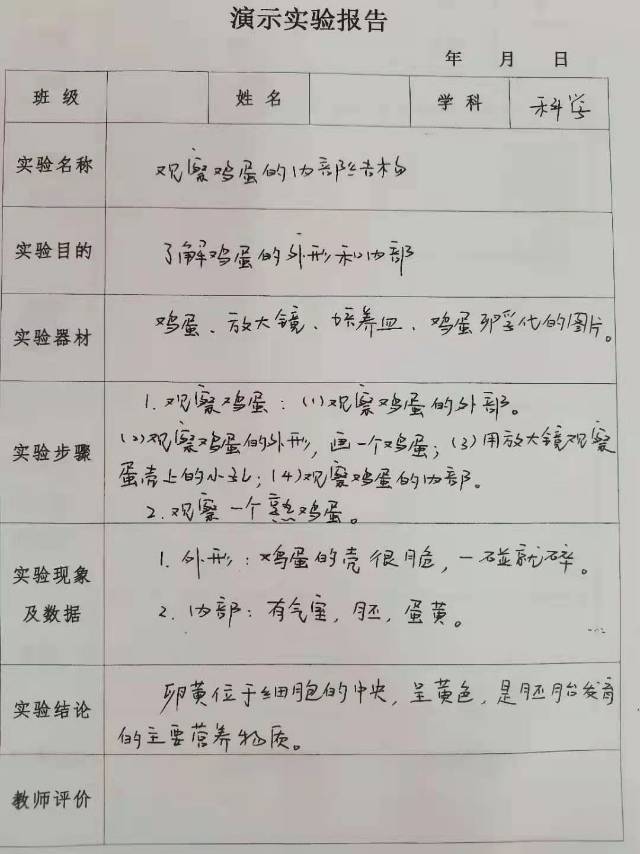 演示实验报告
年 月 日
班级 姓名 学科 科学
实验名称 观察鸡蛋的内部结构
实验目的 了解鸡蛋的外形和内部
实验器材 鸡蛋、放大镜、培养皿、鸡蛋卵孚化的图片。
实验步骤
1.观察鸡蛋:(1)观察鸡蛋的外部。
(2)观察鸡蛋的外形,画一个鸡蛋;(3)用放大镜观察
蛋壳上的小孔;(4)观察鸡蛋的内部。
2.观察一个熟鸡蛋。
实验现象
及数据
1.外形:鸡蛋的壳很脆,一碰就碎。
2.内部:有气室,胚,蛋黄。
实验结论
卵黄位于细胞的中央,呈黄色,是胚胎发育
的主要营养物质。
教师评价